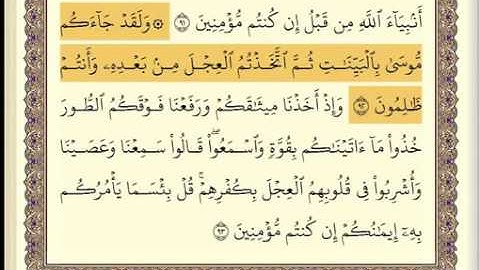 أَنۢبِيَآءَ ٱللَّهِ مِن قَبۡلُ إِن كُنتُم مُّؤۡمِنِينَ ٩١ ۞ وَلَقَدۡ جَآءَكُم
مُّوسَىٰ بِٱلۡبَيِّنَٰتِ ثُمَّ ٱتَّخَذۡتُمُ ٱلۡعِجۡلَ مِنۢ بَعۡدِهِۦ وَأَنتُمۡ
ظَٰلِمُونَ ٩٢ وَإِذۡ أَخَذۡنَا مِيثَٰقَكُمۡ وَرَفَعۡنَا فَوۡقَكُمُ ٱلطُّورَ
خُذُواْ مَآ ءَاتَيۡنَٰكُم بِقُوَّةٖ وَٱسۡمَعُواْۖ قَالُواْ سَمِعۡنَا وَعَصَيۡنَا
وَأُشۡرِبُواْ فِي قُلُوبِهِمُ ٱلۡعِجۡلَ بِكُفۡرِهِمۡۚ قُلۡ بِئۡسَمَا يَأۡمُرُكُم
بِهِۦٓ إِيمَٰنُكُمۡ إِن كُنتُم مُّؤۡمِنِينَ ٩٣